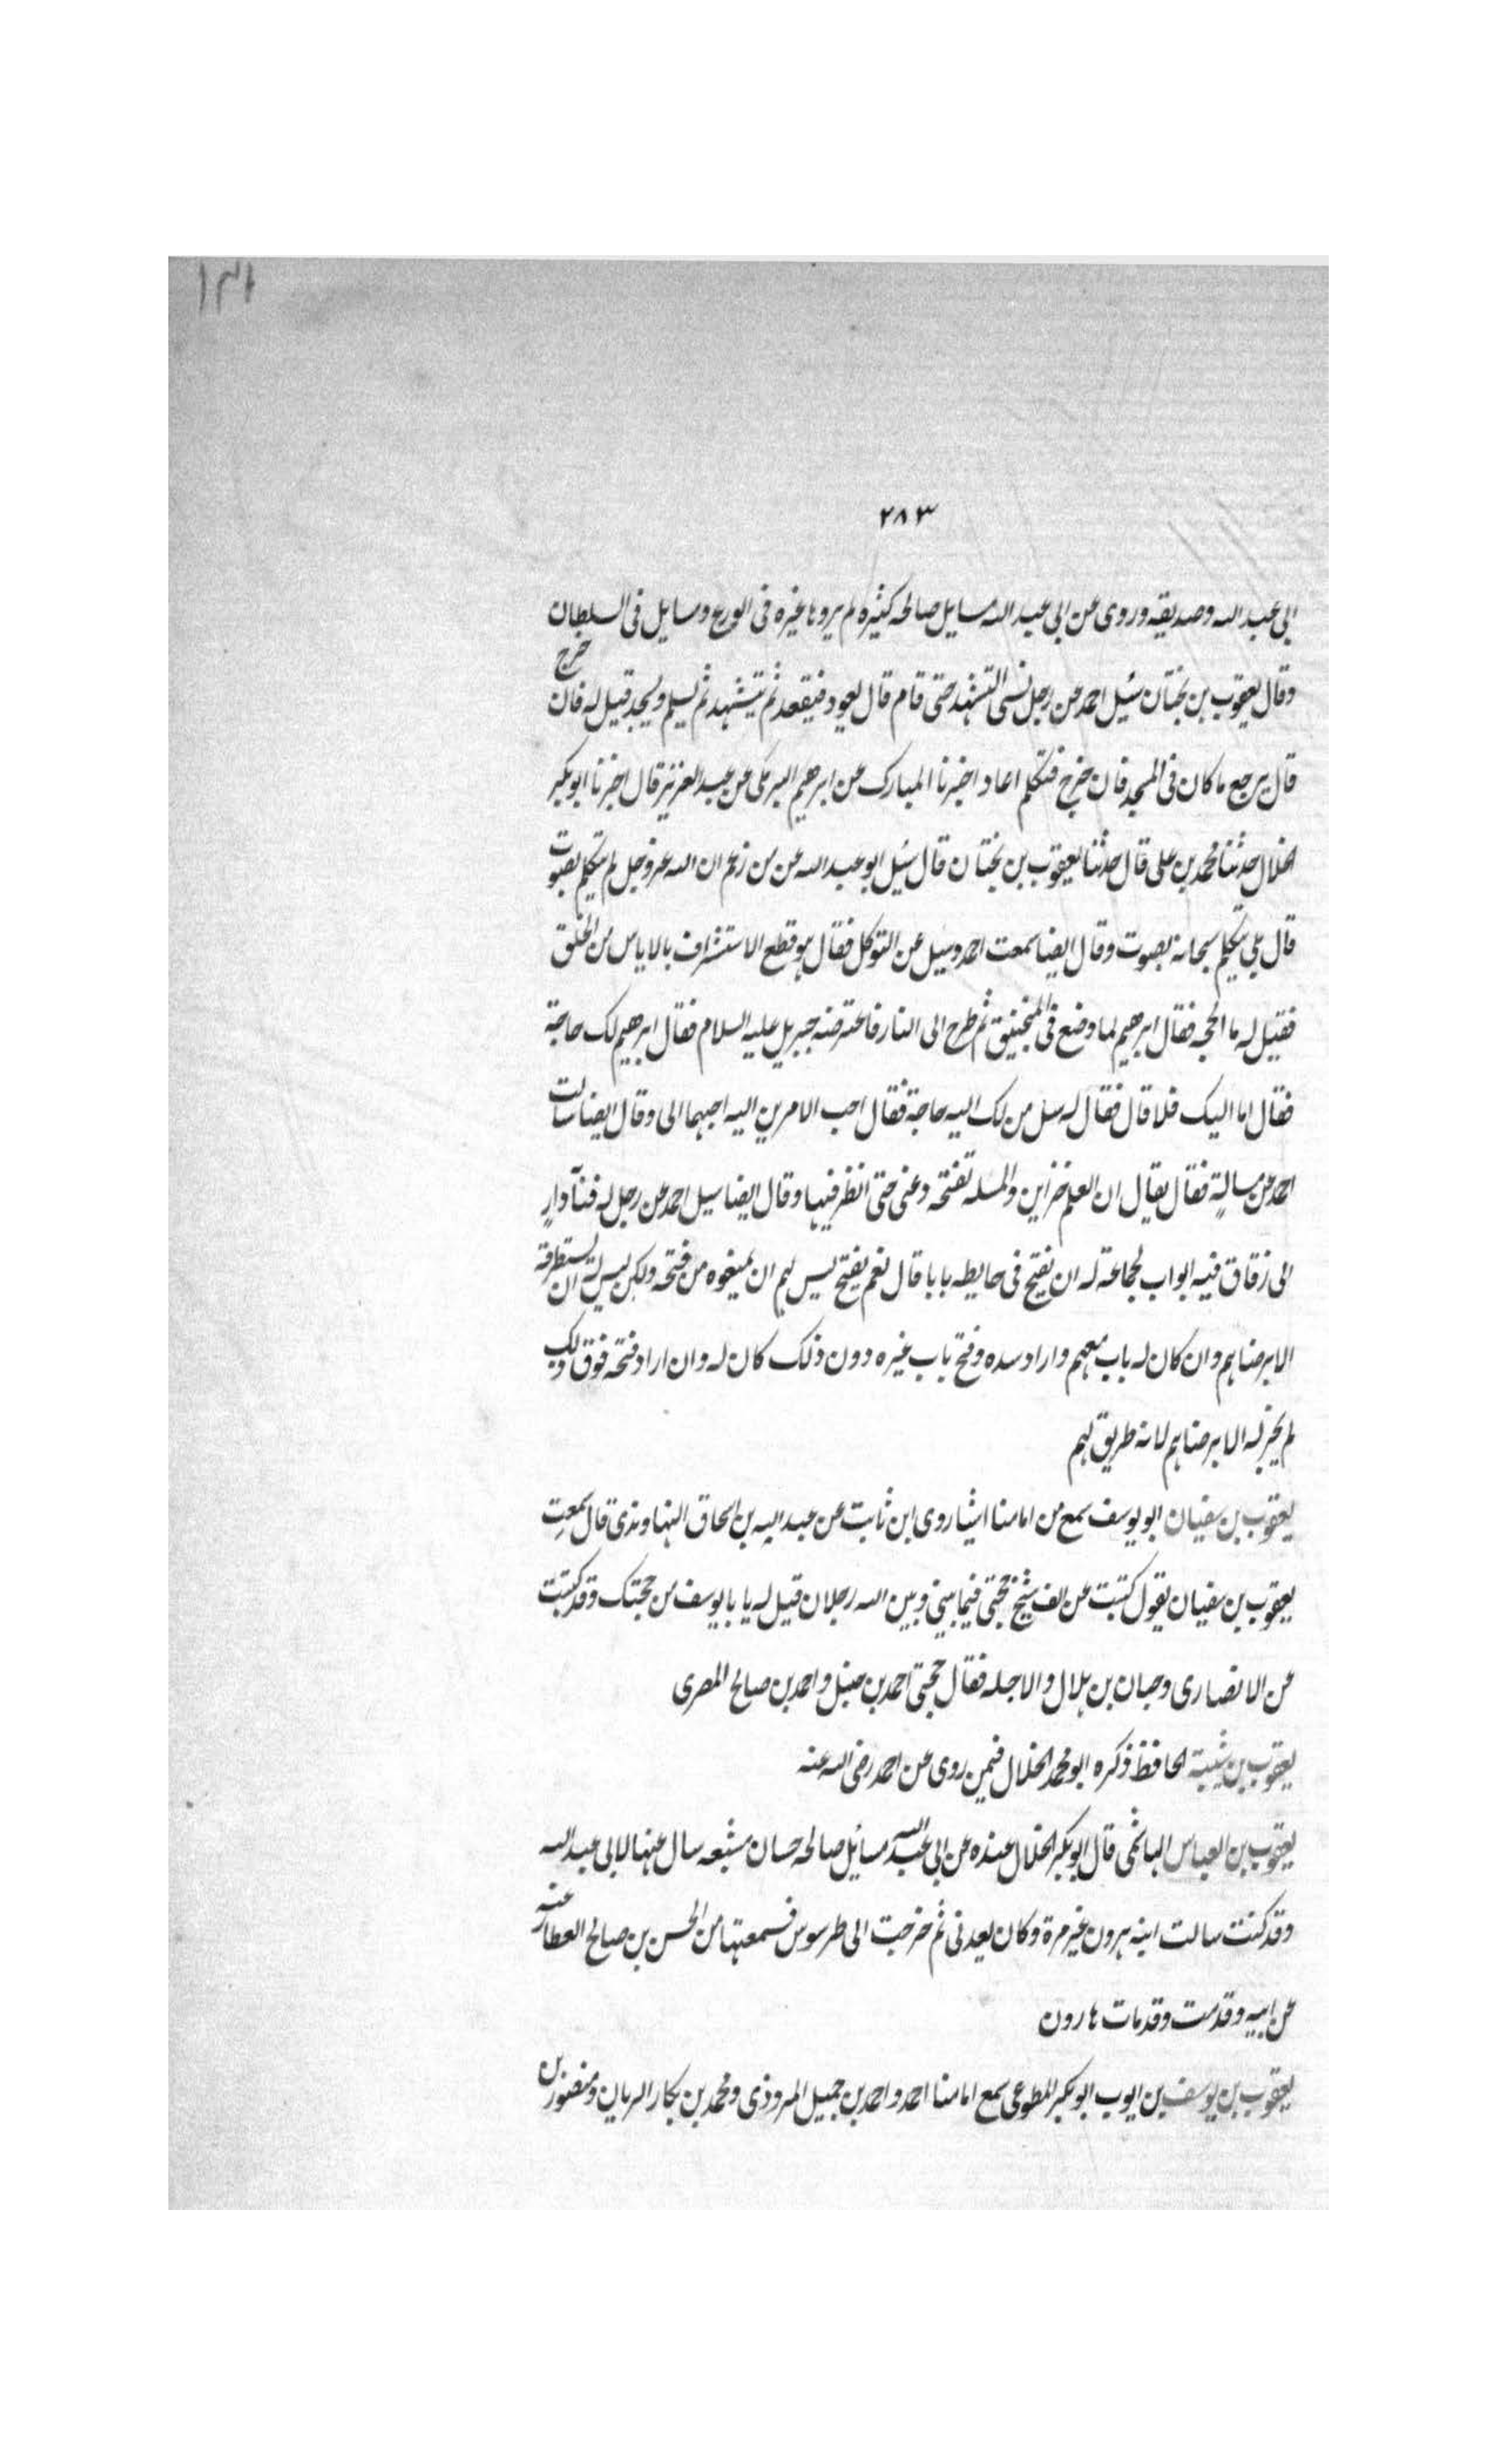 ١٣١
٢٨٣
ابى عبد الله وصديقه وروى عن ابى عبد الله مسايل صالحه كثيره لم يروها غيره فى الورع ومسايل فى السلطان
وقال يعقوب بن بختان سئيل احمد عن رجل نسى التشهد حتى قام قال يعود فيقعد ثم يتشهد ثم يسلم ويسجد قيل له فان خرج
قال يرجع ما كان فى المسجد فان خرج فتكلم اعاد اخبرنا المبارك عن ابرهيم البرمكى عن عبد العزيز قال اخبرنا ابو بكر
الخلال حدثنا محمد بن على قال حدثنا يعقوب بن بختان قال سئيل ابو عبد الله عن من زعم ان الله عز وجل لم يتكلم بصوت
قال بلى يتكلم سبحانه بصوت وقال ايضا سمعت احمد وسيل عن التوكل فقال هو قطع الاستشراف بالاياس من الخلق
فقيل له ما الحجه فقال ابرهيم لما وضع فى المنجنيق ثم طرح الى النار فاعترضه جبريل عليه السلام فقال ابرهيم لك حاجة
فقال اما اليك فلا قال فقال له سل من لك اليه حاجة فقال احب الامرين اليه احبهما الى وقال ايضا سالت
احمد عن مسالة فقال يقال ان العلم خزاين والمسله تفتحه دعنى حتى انظر فيها وقال ايضا سيل احمد عن رجل له فنآ دارٍ
الى زقاق فيه ابواب لجماعة له ان يفتح فى حايطه بابا قال نعم يفتح ليس لهم ان يمنعوه من فتحه ولكن ليس له ان يستطرقه
الا برضاهم وان كان له باب معهم واراد سده وفتح باب غيره دون ذلك كان له وان اراد فتحه فوق ذلك
لم يجز له الا برضاهم لانه طريق لهم
يعقوب بن سفيان ابو يوسف سمع من امامنا اشيا روى ابن ثابت عن عبد الله بن اسحاق النهاوندى قال سمعت
يعقوب بن سفيان يقول كتبت عن الف شيخ حجتى فيما بينى وبين الله رجلان قيل له يا با يوسف من حجتك وقد كتبت
عن الانصارى وحبان بن هلال والاجله فقال حجتى احمد بن حنبل واحمد بن صالح المصرى
يعقوب بن شيبة الحافظ ذكره ابو محمد الخلال فيمن روى عن احمد رضى الله عنه
يعقوب بن العباس الهاشمى قال ابو بكر الخلال عنده عن ابى عبد الله مسائل صالحه حسان مشبعه سال عنها لابى عبد الله
وقد كنت سالت ابنه هرون غير مرة وكان يعدنى ثم خرجت الى طرسوس فسمعتها من الحسن بن صالح العطار عنه
عن ابيه وقدمت وقد مات هارون
يعقوب بن يوسف بن ايوب ابو بكر المطوعى سمع امامنا احمد واحمد بن جميل المروذى ومحمد بن بكار الريان ومنصور بن